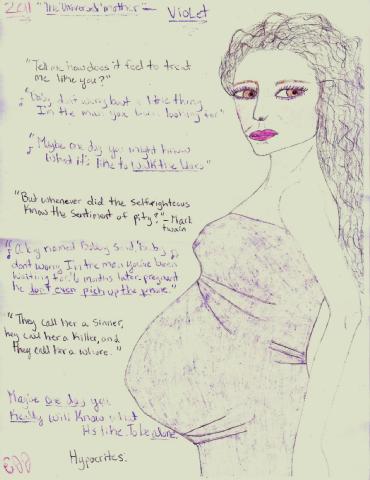 2011 "The Universal Mother" - Violet
"Tell me how does it feel to treat
me like you?"
"Baby don't worry bout a little thing
I'm the man you been looking for"
"Maybe one day you might know
what it's like to walk the
"But whenever did the selfrighteous
know the sentiment of pity?" - Mark
Twain
"A boy named Bobby said Baby,
don't worry I'm the man you've been
waiting for. 6 months later, pregnant
he don't even pick up the phone."
"They call her a Sinner,
they call her a killer, and
they call her a whore."
Maybe one day you
Really will know what
it's like. To be alone.
Hypocrites.